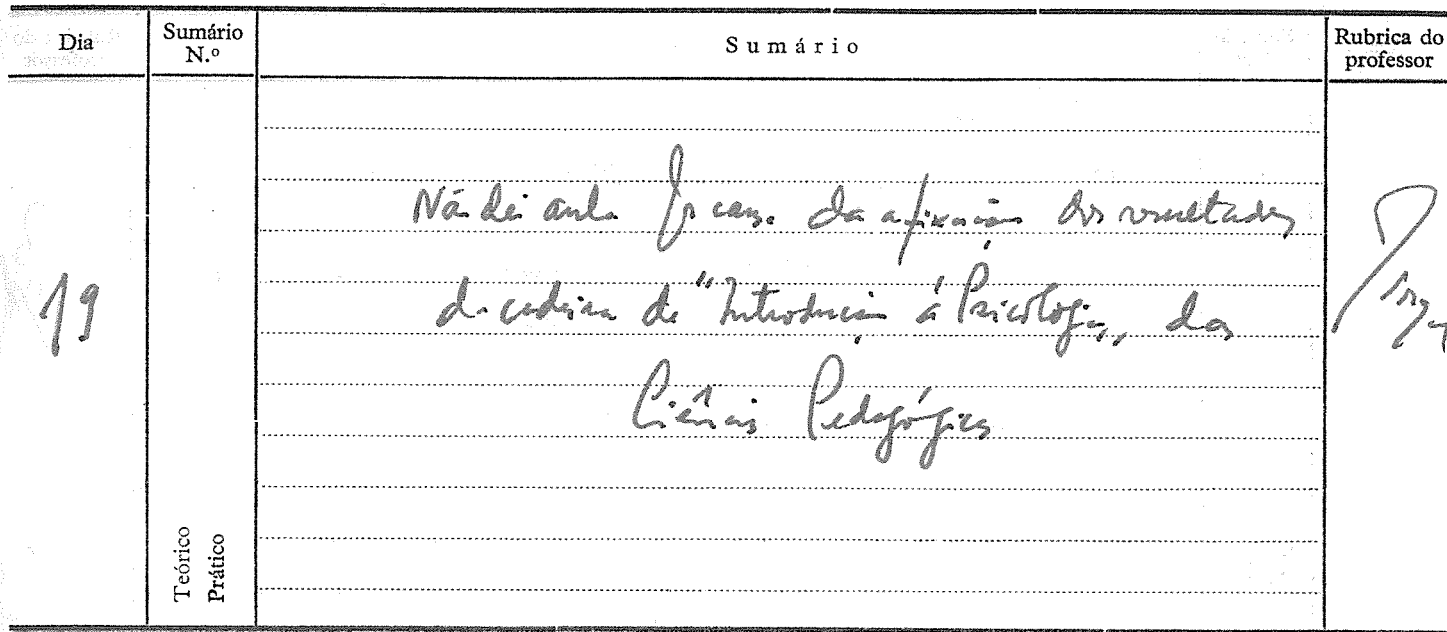 Dia
Sumário N.º
Sumário
Rubrica do professor
19
Não dei aula por causa da afixação dos resultados
da cadeira de "Introdução à Psicologia„ das
Ciências Pedagógicas
Teórico
Prático